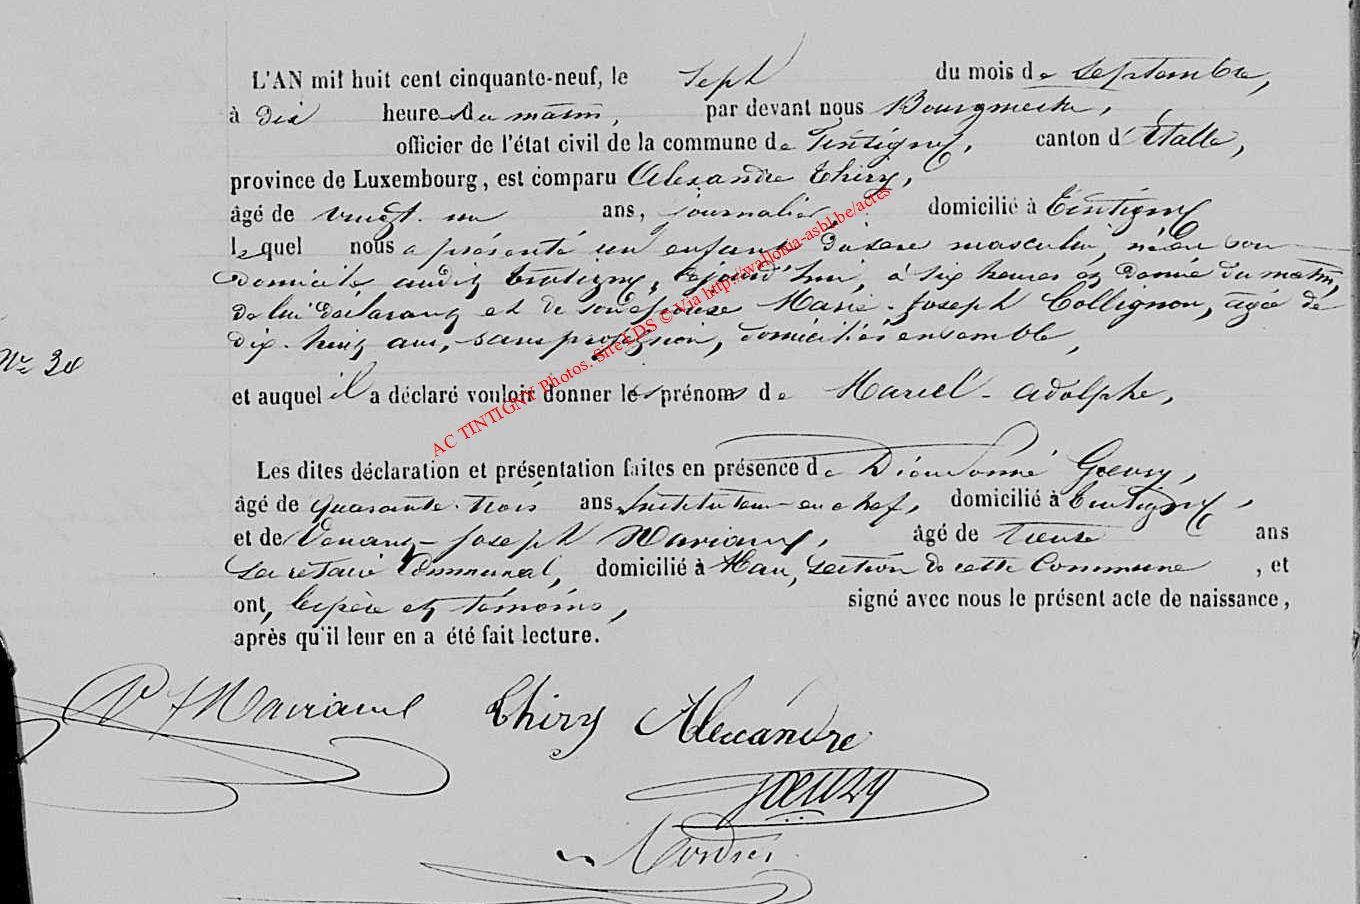 L'AN mil huit cent cinquante-neuf, le sept du mois de septembre,
à dix heures du matin, par devant nous Bourgmestre,
officier de l'état civil de la commune de Tintigny, canton d'Etalle,
province de Luxembourg, est comparu Alexandre Thiry,
âgé de vingt-un ans, journalier, domicilié à Tintigny
lequel nous a présenté un enfant du sexe masculin, né en son
domicile audit Tintigny, aujourd'hui, à six heures et demie du matin,
de lui déclarant et de son épouse Marie-Joseph Collignon, agée de
dix-huit ans, sans profession, domiciliés ensemble,
N° 30
et auquel il a déclaré vouloir donner les prénoms de Marcel-Adolphe,
Les dites déclaration et présentation faites en présence de Dieudonné Goeury,
âgé de quarante-trois ans, Instituteur en chef, domicilié à Tintigny,
et de Joseph âgé de trente ans
secrétaire communal, domicilié à Han, section de cette Commune, et
ont, le père et témoins, signé avec nous le présent acte de naissance,
après qu'il leur en a été fait lecture.
Thiry Alexandre
Goeury
AC TINTIGNY Photos. Site LDS © Via http://wallonia-asbl.be/actes